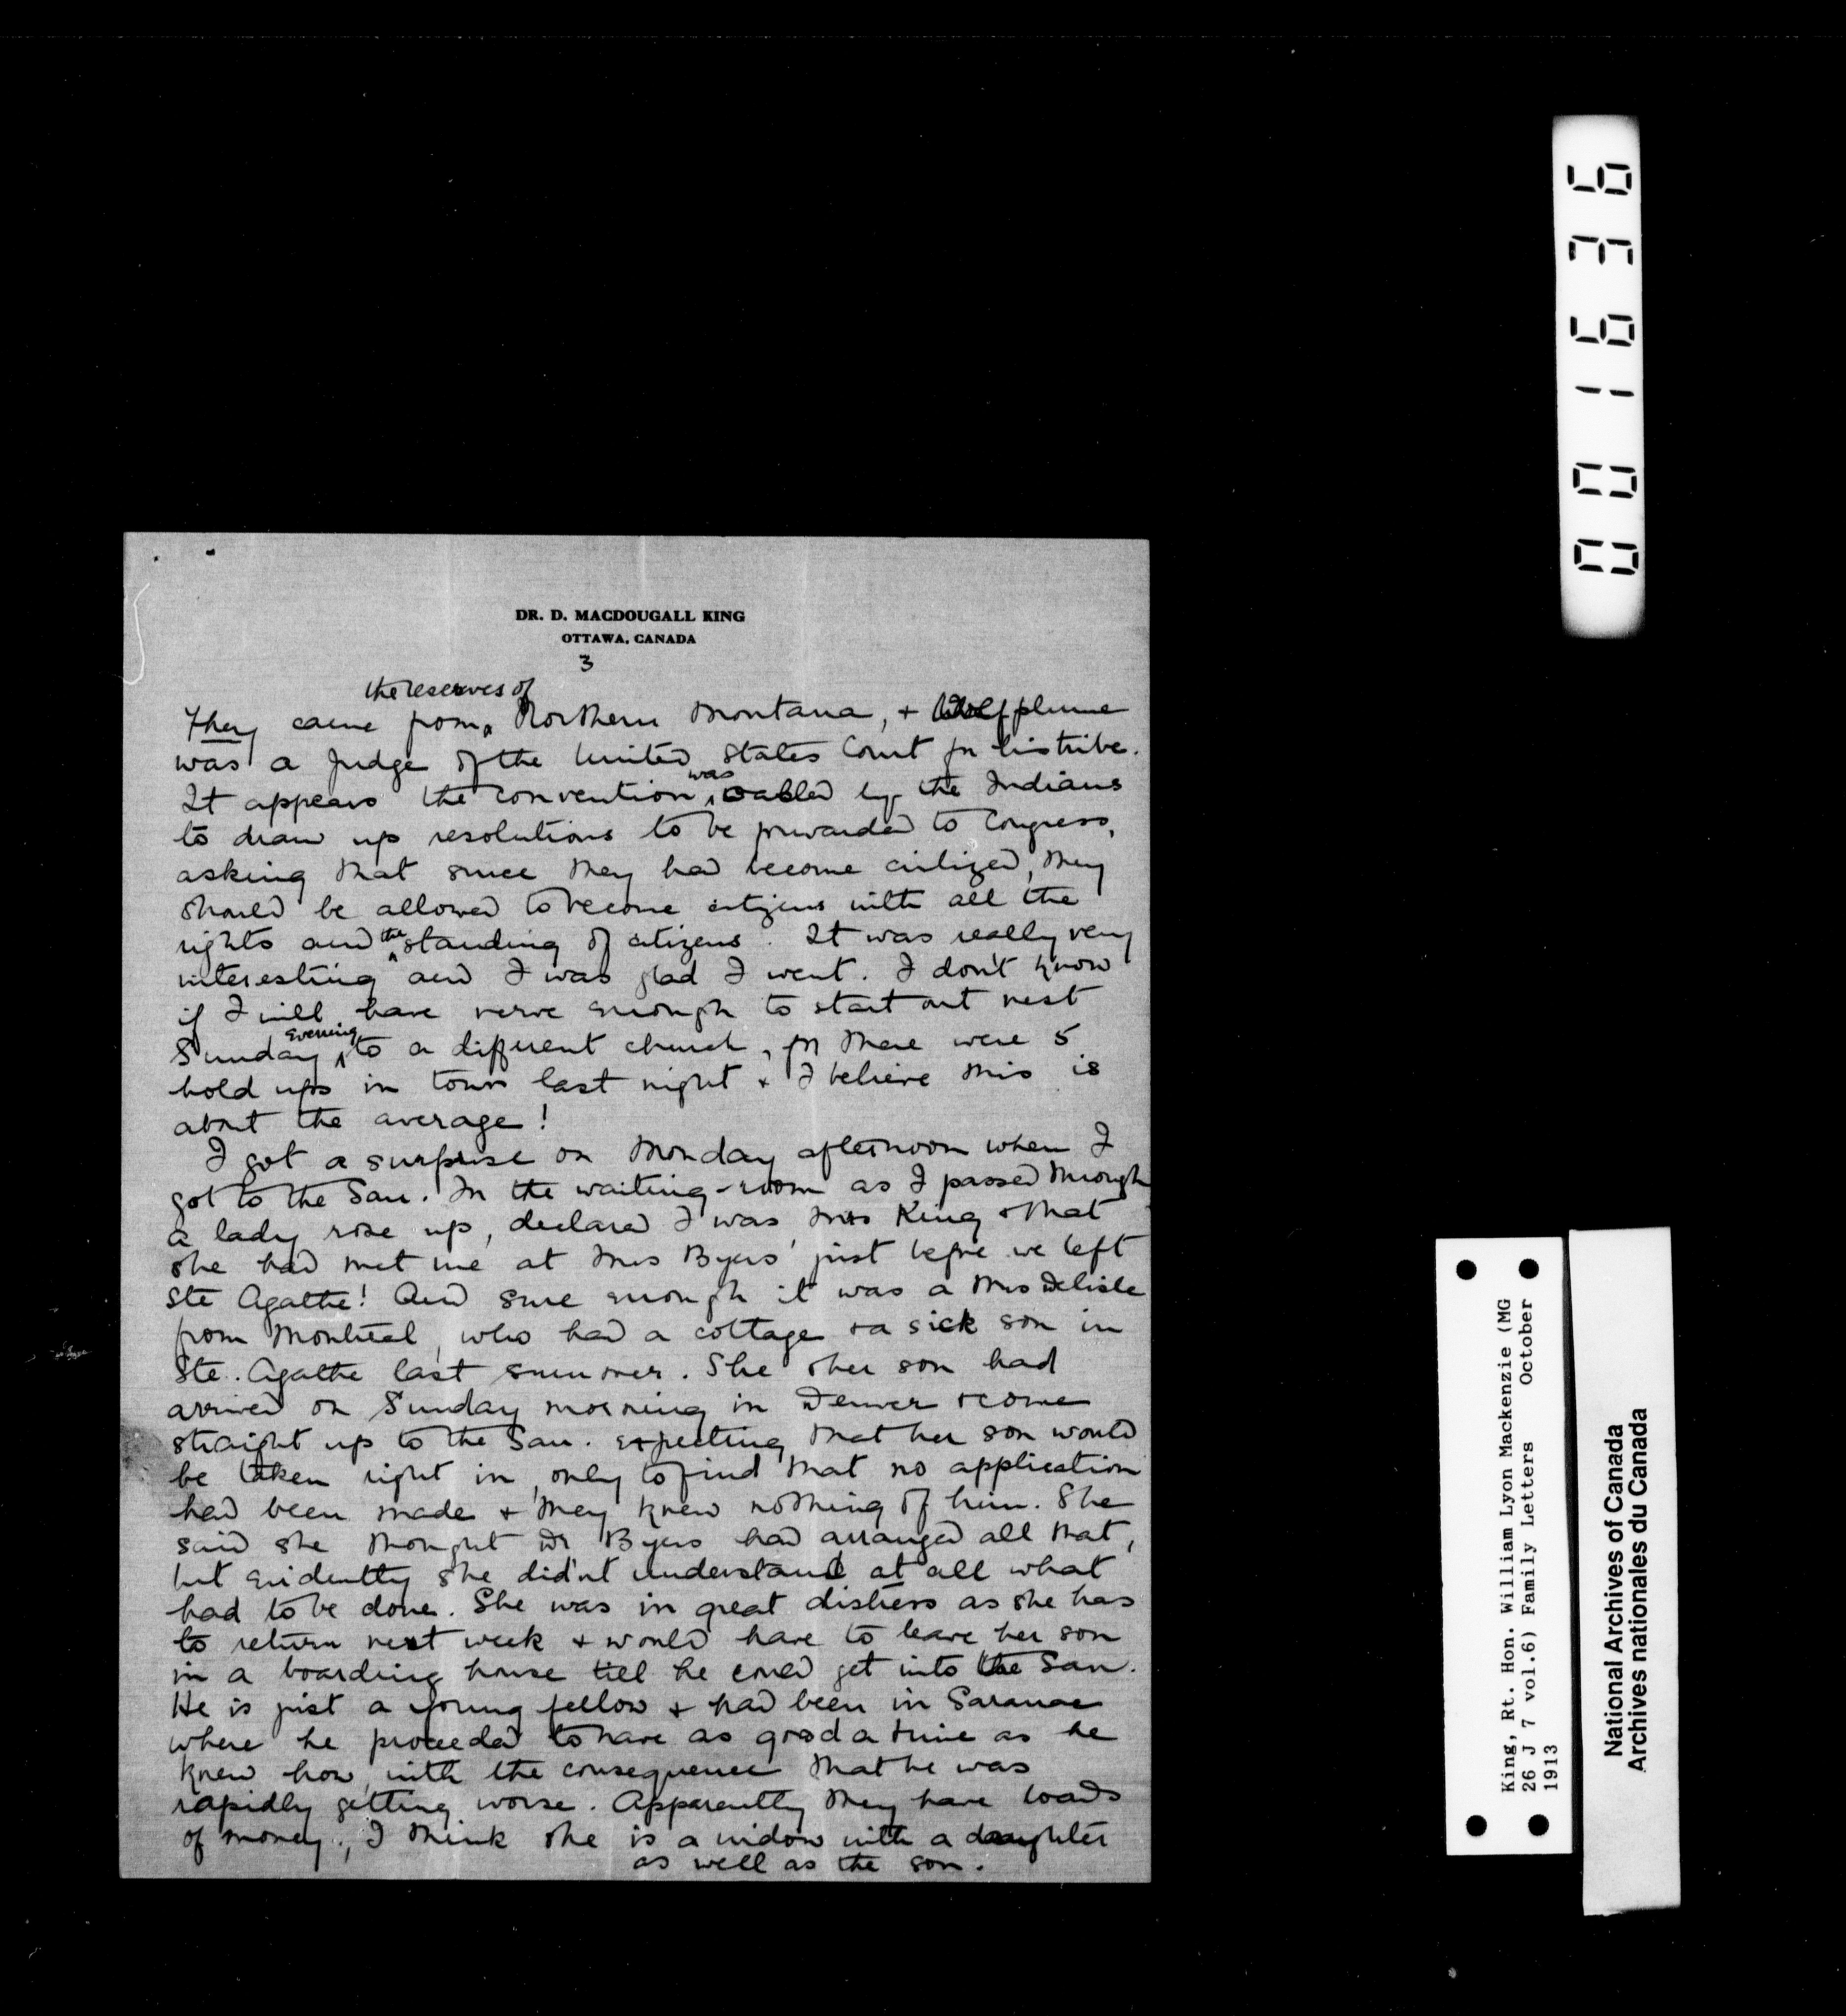 DR. D. MACDOUGALL KING
OTTAWA, CANADA
3
the reserves of
They came from Northern Montana, + Wolfplume
was a Judge of the United States Court for his tribe.
was
It appears the convention called by the Indians
to draw up resolutions to be forwarded to Congress,
asking that since they had become civilized, they
should be allowed to become citizens with all the
rights and the standing of citizens. It was really very
interesting and I was glad I went. I don't know
if I will have nerve enough to start out next
evening
Sunday to a different church, for there were 5
hold ups in town last night + I believe this is
about the average!
I got a surprise on Monday afternoon when I
got to the San. In the waiting-room as I passed through
a lady rose up, declared I was Mrs King + that
she had met me at Mrs Byers' just before we left
Ste Agathe! And sure enough it was a Mrs Delisle
from Montreal, who had a cottage + a sick son in
Ste. Agathe last summer. She + her son had
arrived on Sunday morning in Denver + come
straight up to the San. expecting that her son would
be taken right in, only to find that no application
had been made + they knew nothing of him. She
said she thought Dr Byers had arranged all that,
but evidently she didn't understand at all what
had to be done. She was in great distress as she has
to return next week + would have to leave her son
in a boarding house till he could get into the San.
He is just a young fellow + had been in Saranac
where he proceeded to have as good a time as he
knew how, with the consequence that he was
rapidly getting worse. Apparently they have loads
of money, I think she is a widow with a daughter
as well as the son.
001636
King, Rt. Hon. William Lyon Mackenzie (MG
26 J 7 vol.6) Family Letters October
1913
National Archives of Canada
Archives nationales du Canada